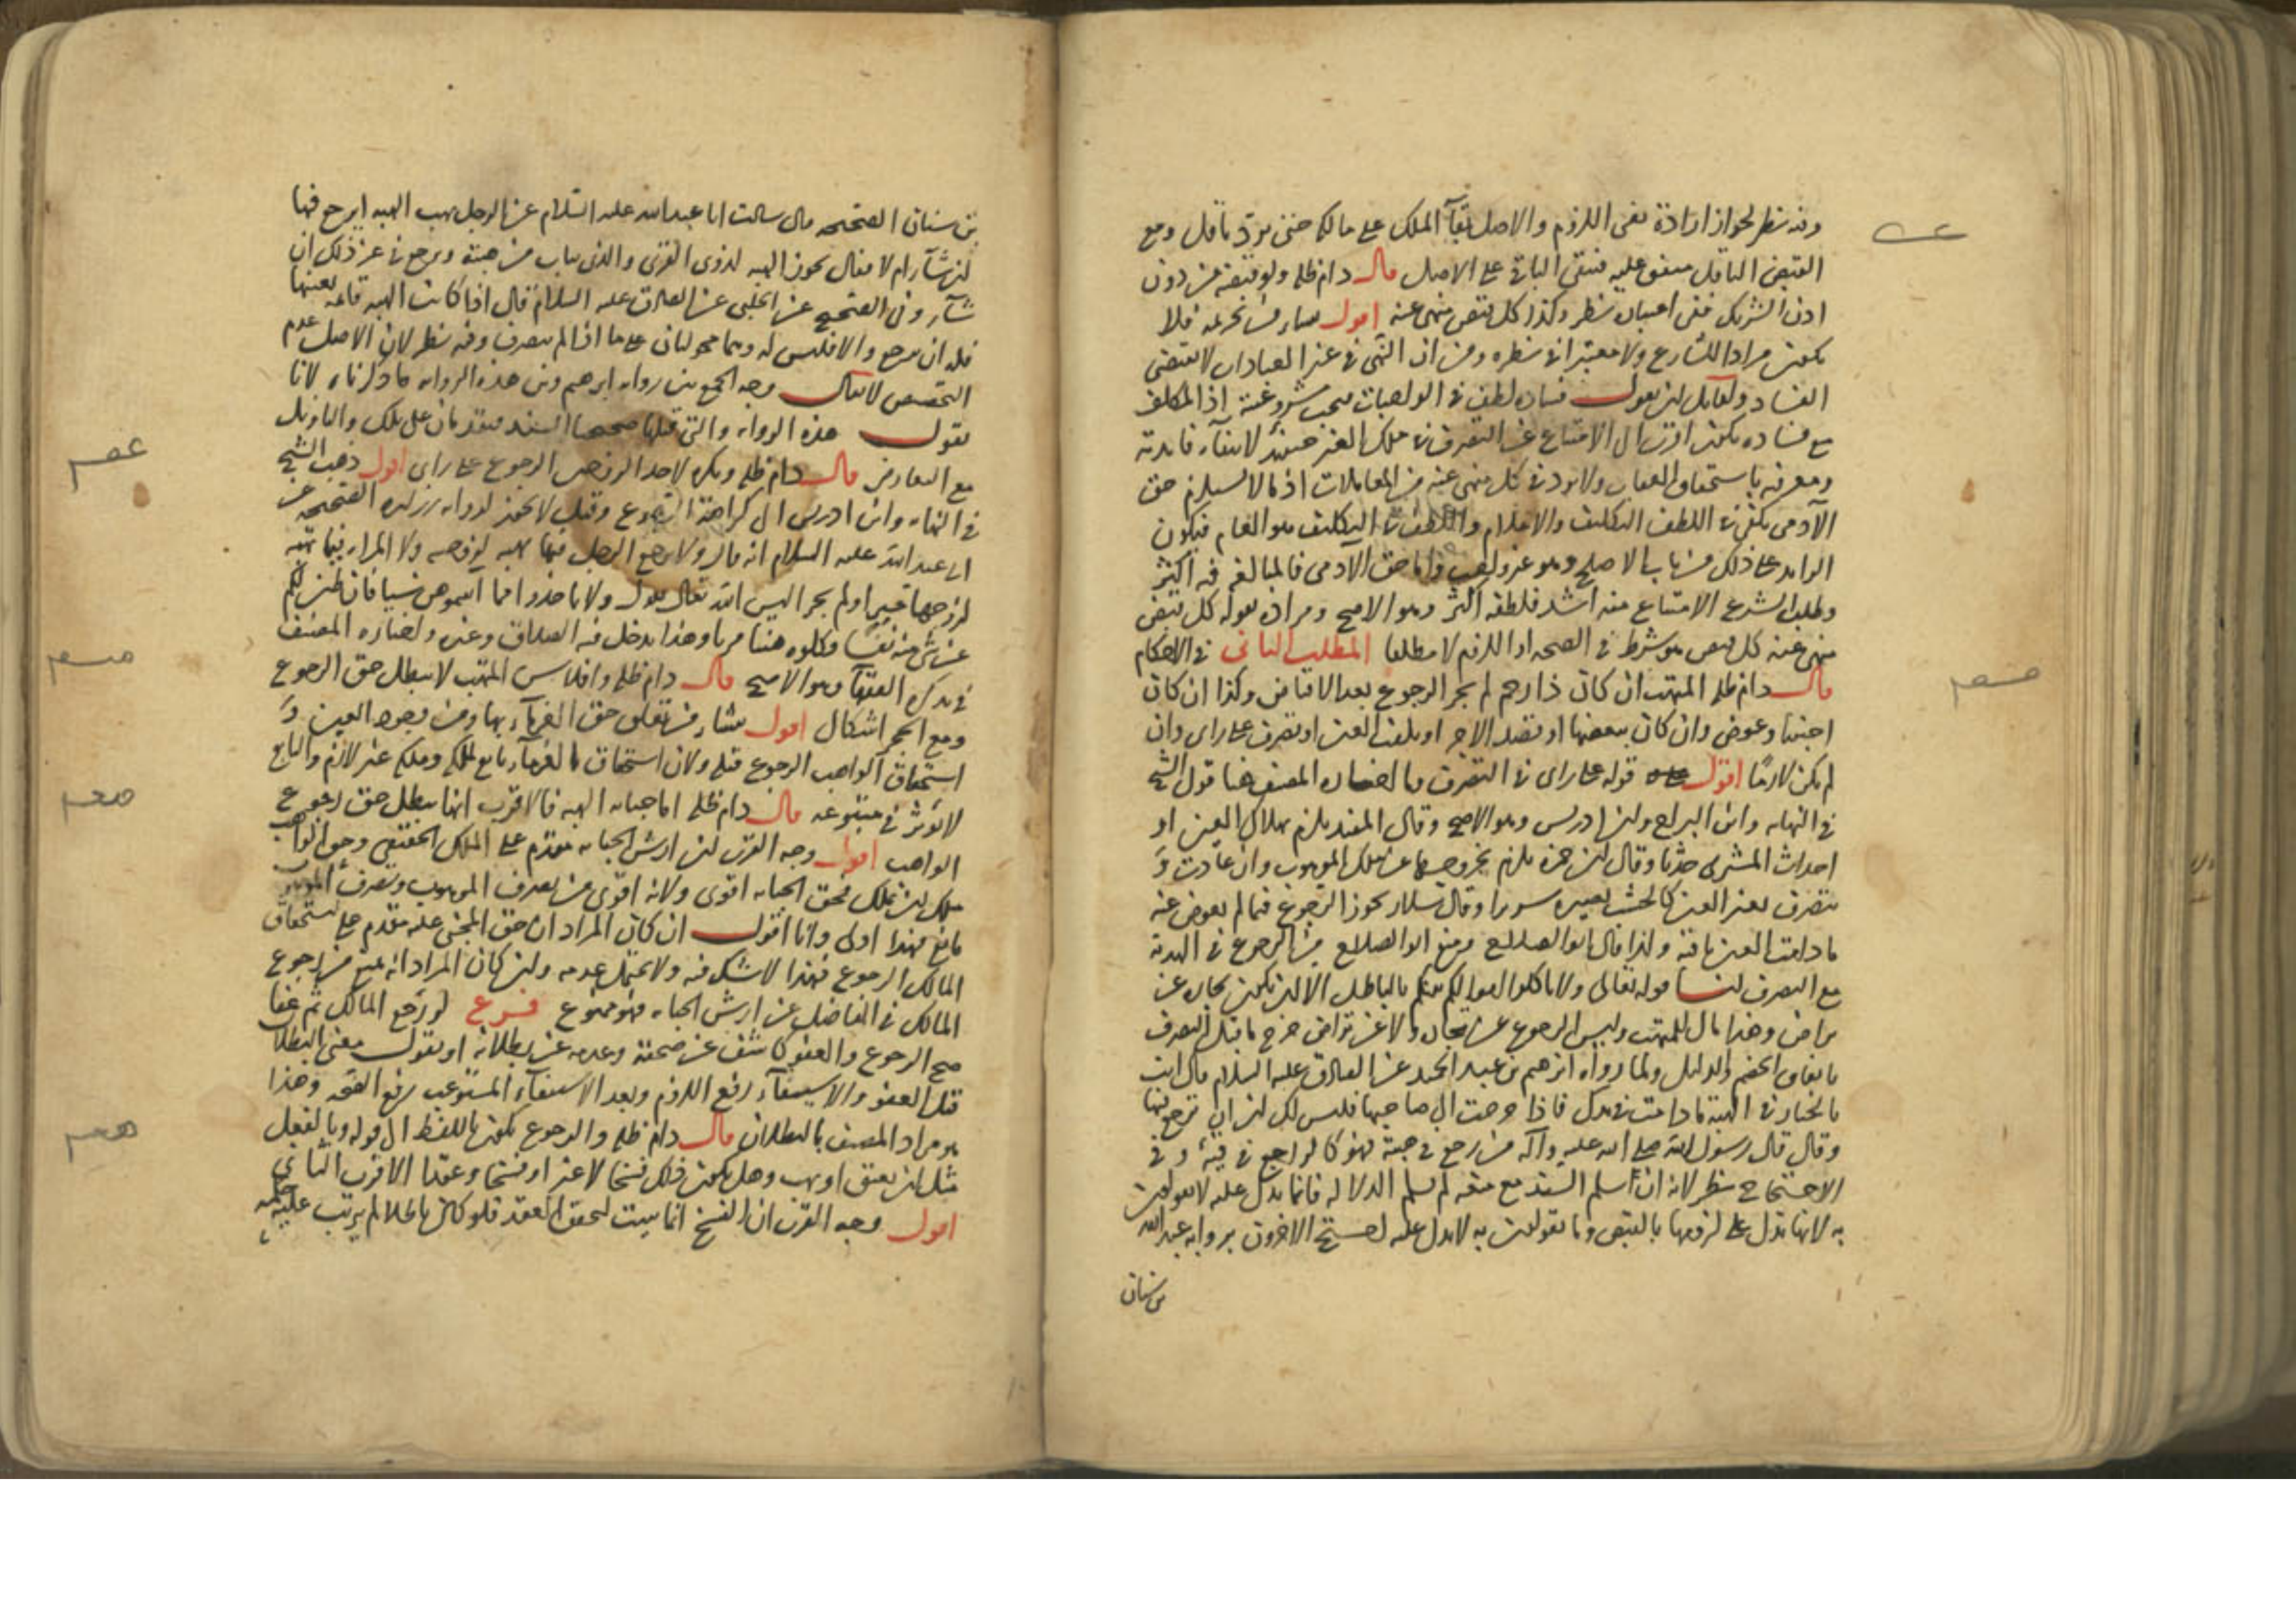 وفيه نظر لجواز ارادة نفى اللزوم والاصل بقآء الملك على مالكه حتى يرد ناقل ومع
القبض الناقل متفق عليه فيبقى الباقى على الاصل قال دام ظله ولو قبضه من دون
اذن الشريك ففى اعتباره نظر وكذا كل قبض منهى عنه اقول ينشأ من تحريمه فلا
يكون مرادا للشارع ولا معتبرا فى نظره ومن ان النهى فى غير العبادات لا يقتضى
الفساد ولقايل ان يقول فساده لطف فى الواجبات فيجب شرعيته اذ المكلف
مع فساده يكون اقرب الى الامتناع عن التصرف فى ملك الغير حينئذ لانتفآء فايدته
ومعرفته باستحقاق العقاب ولا يرد فى كل منهى عنه من المعاملات اذ ما لا يستلزم حق
الآدمى يكفى فى اللطف التكليف والاعلام واللطف فى التكليف هو العام فيكون
الزايد على ذلك من باب الاصلح وهو غير واجب واما حق الآدمى فالمبالغة فيه اكثر
وطلب الشرع الامتناع منه اشد فلطفه اكثر وهو الاصح ومراده بقوله كل قبض
منهى عنه كل قبض هو شرط فى الصحة او اللزوم لا مطلقا المطلب الثانى فى الاحكام
قال دام ظله المتهب ان كان ذا رحم لم يجز الرجوع بعد الاقباض وكذا ان كان
اجنبيا وعوض وان كان ببعضها او قصد الاجر او تلفت العين او تصرف على راى وان
لم يكن لازما اقول قوله على راى فى التصرف وما اختاره المصنف هنا قول الشيخ
فى النهايه وابن البراج وابن ادريس وهو الاصح وقال المفيد يلزم بهلاك العين او
احداث المشترى حدثا وقال ابن حمزه يلزم بخروجها عن ملك الموهوب وان عادت و
بتصرف يغير العين كالخشب يصيره سريرا وقال سلار يجوز الرجوع فيما لم يعوض عنه
ما دامت العين باقية وكذا قال ابو الصلاح ومنع ابو الصلاح من الرجوع فى الهدية
مع التصرف لنا قوله تعالى ولا تاكلوا اموالكم بينكم بالباطل الا ان تكون تجارة عن
تراض وهذا مال للمتهب وليس الرجوع عن تجارة ولا عن تراض خرج ما قبل التصرف
باتفاق الخصم والدليل ولما رواه ابراهيم بن عبد الحميد عن الصادق عليه السلام قال انت
بالخيار فى الهبة ما دامت فى يدك فاذا خرجت الى صاحبها فليس لك ان ترجع فيها
وقال قال رسول الله صلى الله عليه وآله من رجع فى هبته فهو كالراجع فى قيئه وفى
الاحتجاج نظر لانه ان اسلم السند مع ضعفه لم يسلم الدلاله فانما يدل عليه لا يقولون
به لانها تدل على لزومها بالقبض وما يقولون به لا يدل عليه احتج الاخرون برواية عبد الله
بن سنان
بن سنان الصحيحه قال سالت ابا عبد الله عليه السلام عن الرجل يهب الهبه ايرجع فيها
ان شآء ام لا فقال تجوز الهبه لذوى القربى والذى يثاب من هبته ويرجع فى غير ذلك ان
شآء وفى الصحيح عن الحلبى عن الصادق عليه السلام قال اذا كانت الهبه قايمه بعينها
فله ان يرجع والا فليس له وهما محمولتان على ما اذا لم يتصرف وفيه نظر لان الاصل عدم
التخصيص لا يقال وجه الجمع بين روايه ابرهيم وبين هذه الروايه ما ذكرناه لانا
نقول هذه الروايه والتى قبلها صحيحتا السند مقدمتان على تلك والتاويل
مع التعارض قال دام ظله ويكره لاحد الزوجين الرجوع على راى اقول ذهب الشيخ
فى النهايه وابن ادريس الى كراهة الرجوع وقيل لا يجوز لروايه زراره الصحيحه عن
ابى عبد الله عليه السلام انه قال ولا يرجع الرجل فيما يهبه لزوجته ولا المراه فيما تهبه
لزوجها حيز او لم يحز اليس الله تعالى يقول ولا تاخذوا مما آتيتموهن شيئا فان طبن لكم
عن شئ منه نفسا فكلوه هنيئا مريا وهذا يدخل فيه الصداق وغيره واختاره المصنف
فى تذكرة الفقهآ وهو الاصح قال دام ظله وافلاس المتهب لا يبطل حق الرجوع
ومع الحجر اشكال اقول ينشأ من تعلق حق الغرمآء بها ومن وجود العين و
استحقاق الواهب الرجوع قبله ولان استحقاق الغرمآء تابع لملكه وملكه غير لازم والتابع
لا يؤثر فى متبوعه قال دام ظله اما جنايه الهبه فالاقرب انها تبطل حق رجوع
الواهب اقول وجه القرب ان ارش الجنايه مقدم على الملك الحقيقى وحق الواهب
ملك ان يملك فحق الجنايه اقوى ولانه اقوى من تصرف الموهوب وتصرف الموهوب
مانع فهذا اولى وانا اقول ان كان المراد ان حق المجنى عليه مقدم على استحقاق
المالك الرجوع فهذا لا شك فيه ولا يحتمل عدمه وان كان المراد انه يمنع من رجوع
المالك فى الفاضل عن ارش الجنايه فهو ممنوع فرع لو رجع المالك ثم عفا
صح الرجوع والعفو كاشف عن صحته وعدمه عن بطلانه او نقول معنى البطلان
قبل العفو والاستيفآء رفع اللزوم وبعد الاستيفآء المستوعب رفع الصحه وهذا
هو مراد المصنف بالبطلان قال دام ظله والرجوع يكون باللفظ الى قوله وبالفعل
مثل ان يعتق او يهب وهل يكون ذلك فسخا لا غير او فسخا وعقدا الاقرب الثانى
اقول وجه القرب ان الفسخ انما يثبت لتحقق العقد فلو كان باطلا لم يترتب عليه حكمه